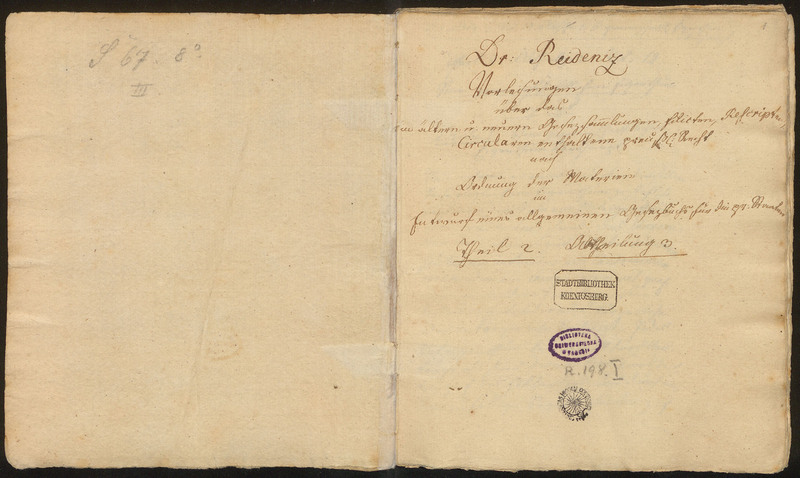 S 67. 8º.
III
1
Dr: Reideniz
Vorlesungen
über das
in ältern u. neuern Gesezsammlungen, Edicten, Rescripten,
Circularen enthaltene preuß. Recht
nach
Ordnung der Materien
im
Entwurf eines allgemeinen Gesezbuchs für die pr. Staaten
Theil 2. Abtheilung 3.
STADTBIBLIOTHEK
KOENIGSBERG.
BIBLIOTEKA
UNIWERSYTECKA
W TORUNIU
R. 198. I